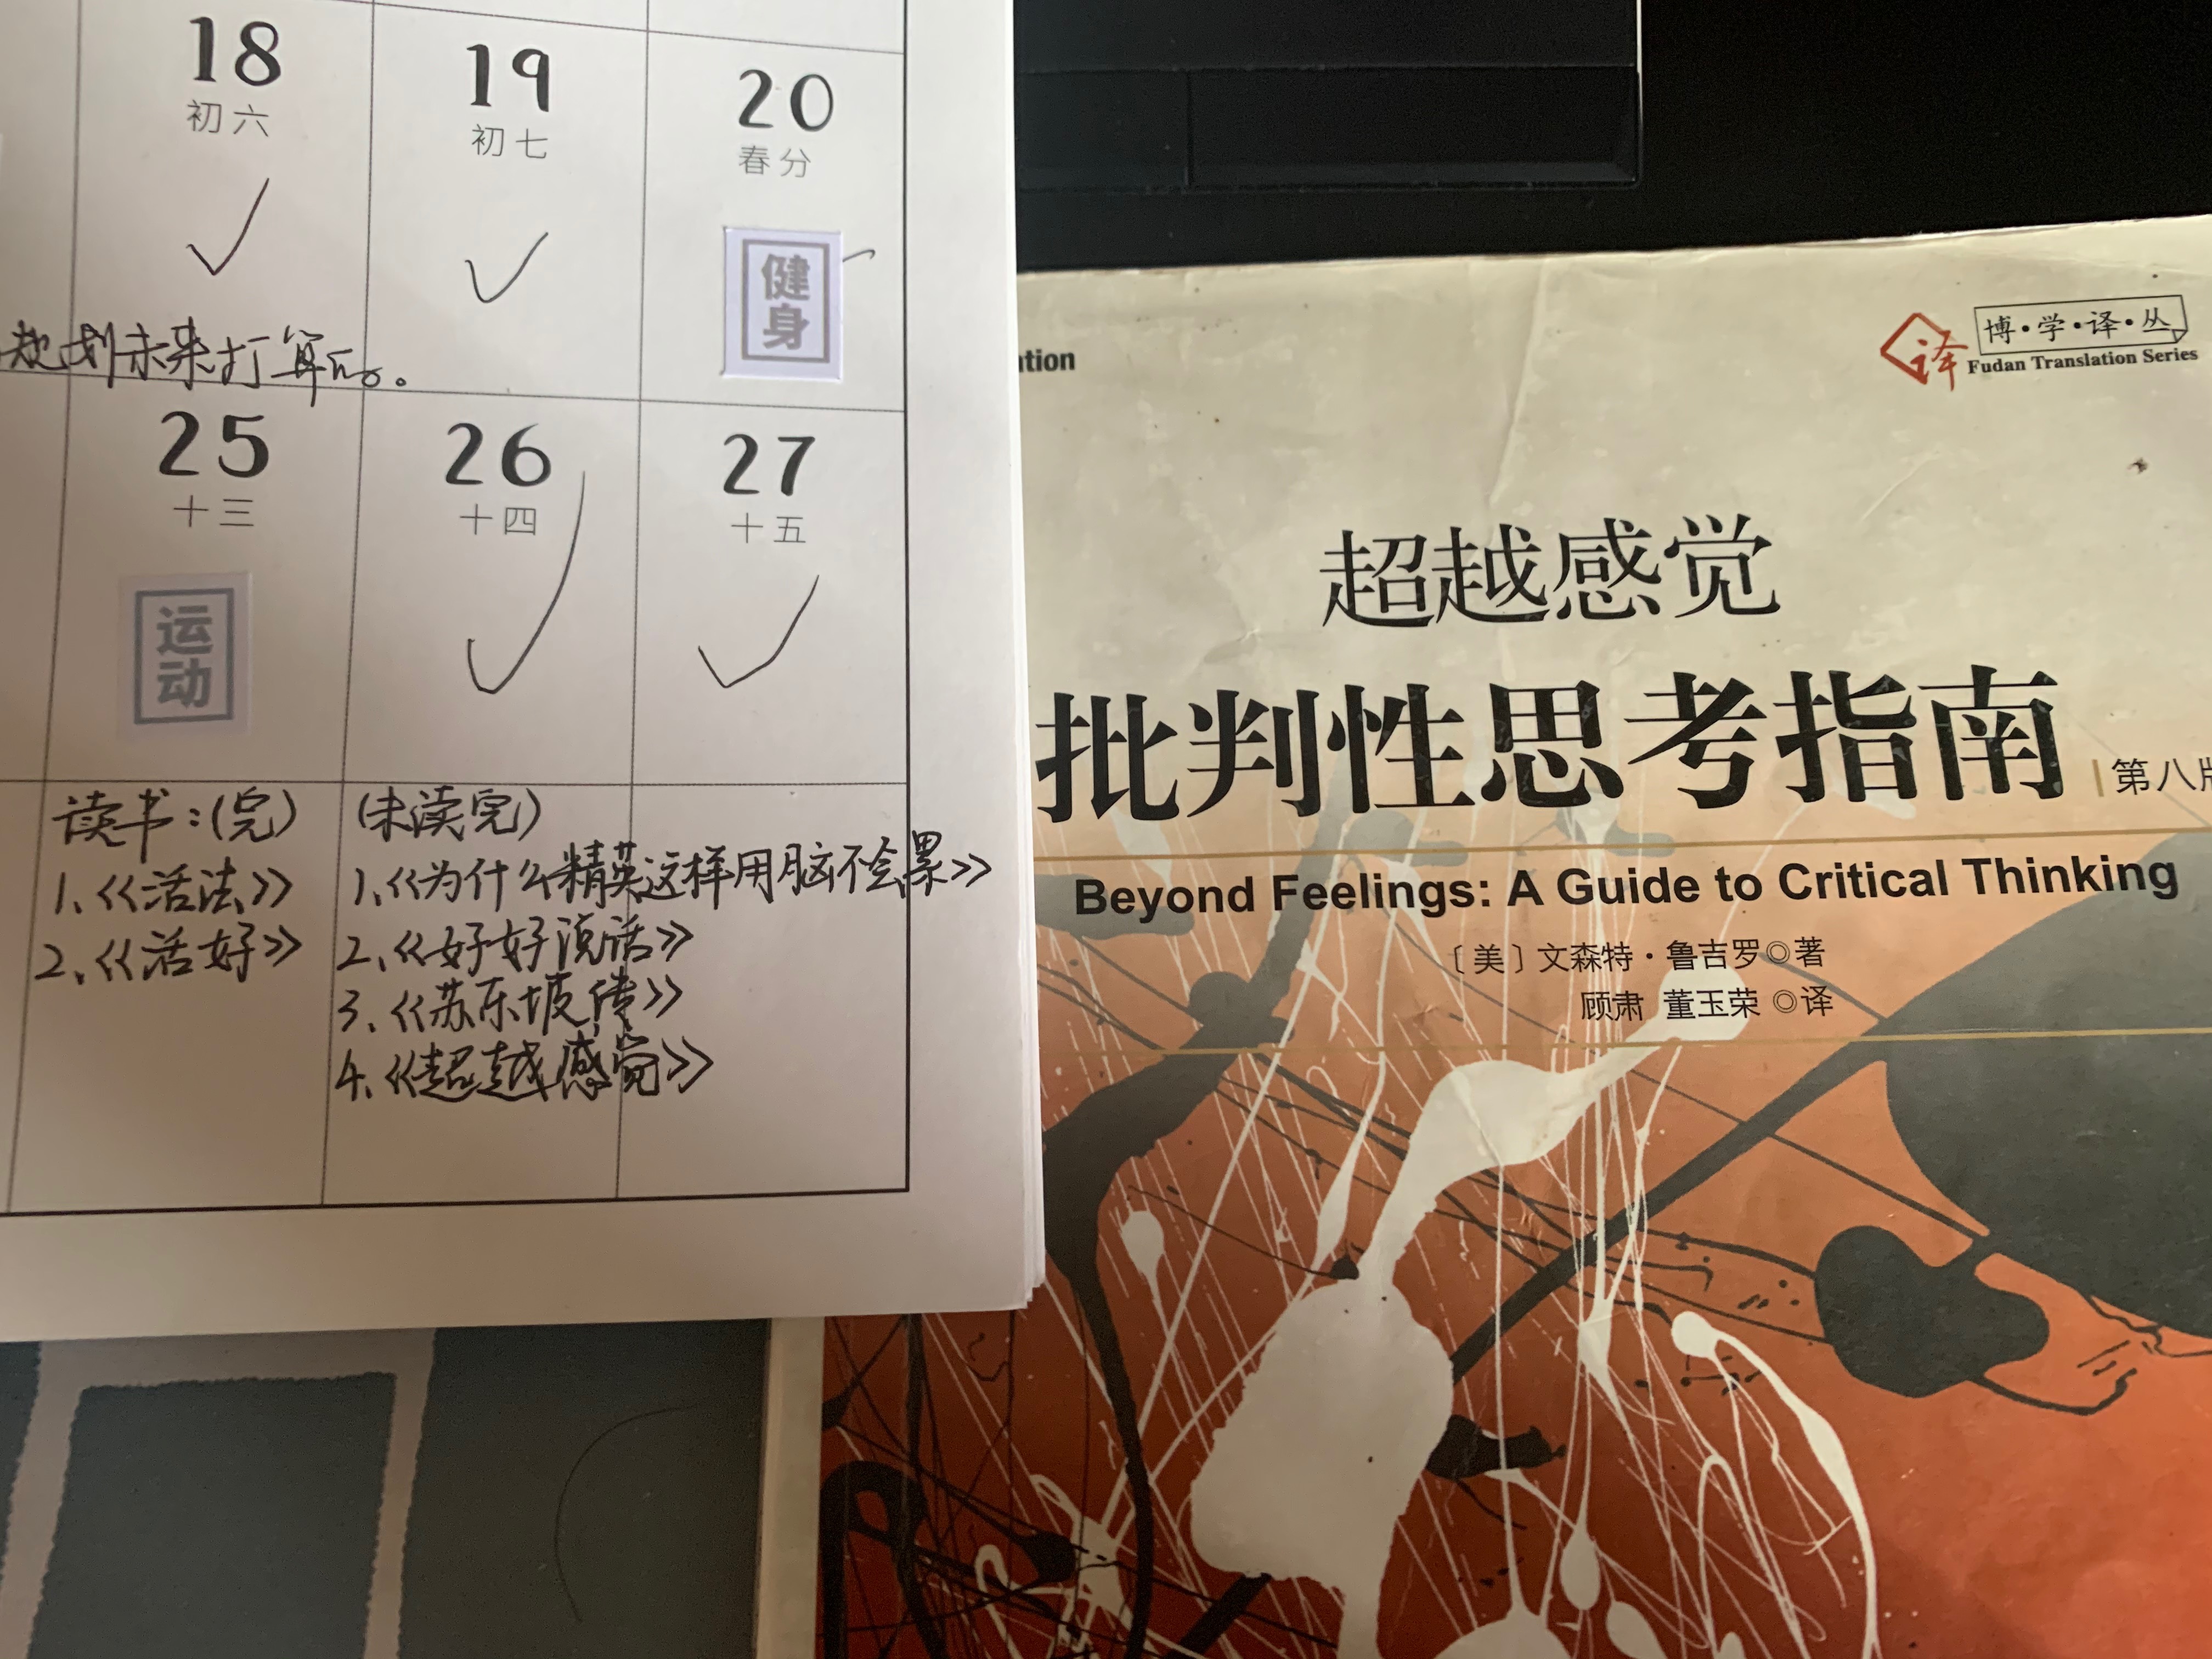 18
初六
19
初七
20
春分
健身
规划未来打算
25
十三
26
十四
27
十五
运动
读书：(完)
1.《活法》
2、《活好》
(未读完)
1、《为什么精英这样用脑不会累》
2、《好好说话》
3、《苏东坡传》
4、《超越感觉》
tion
译
博·学·译·丛
Fudan Translation Series
超越感觉
批判性思考指南
第八版
Beyond Feelings: A Guide to Critical Thinking
〔美〕文森特·鲁吉罗◎著
顾肃 董玉荣◎译